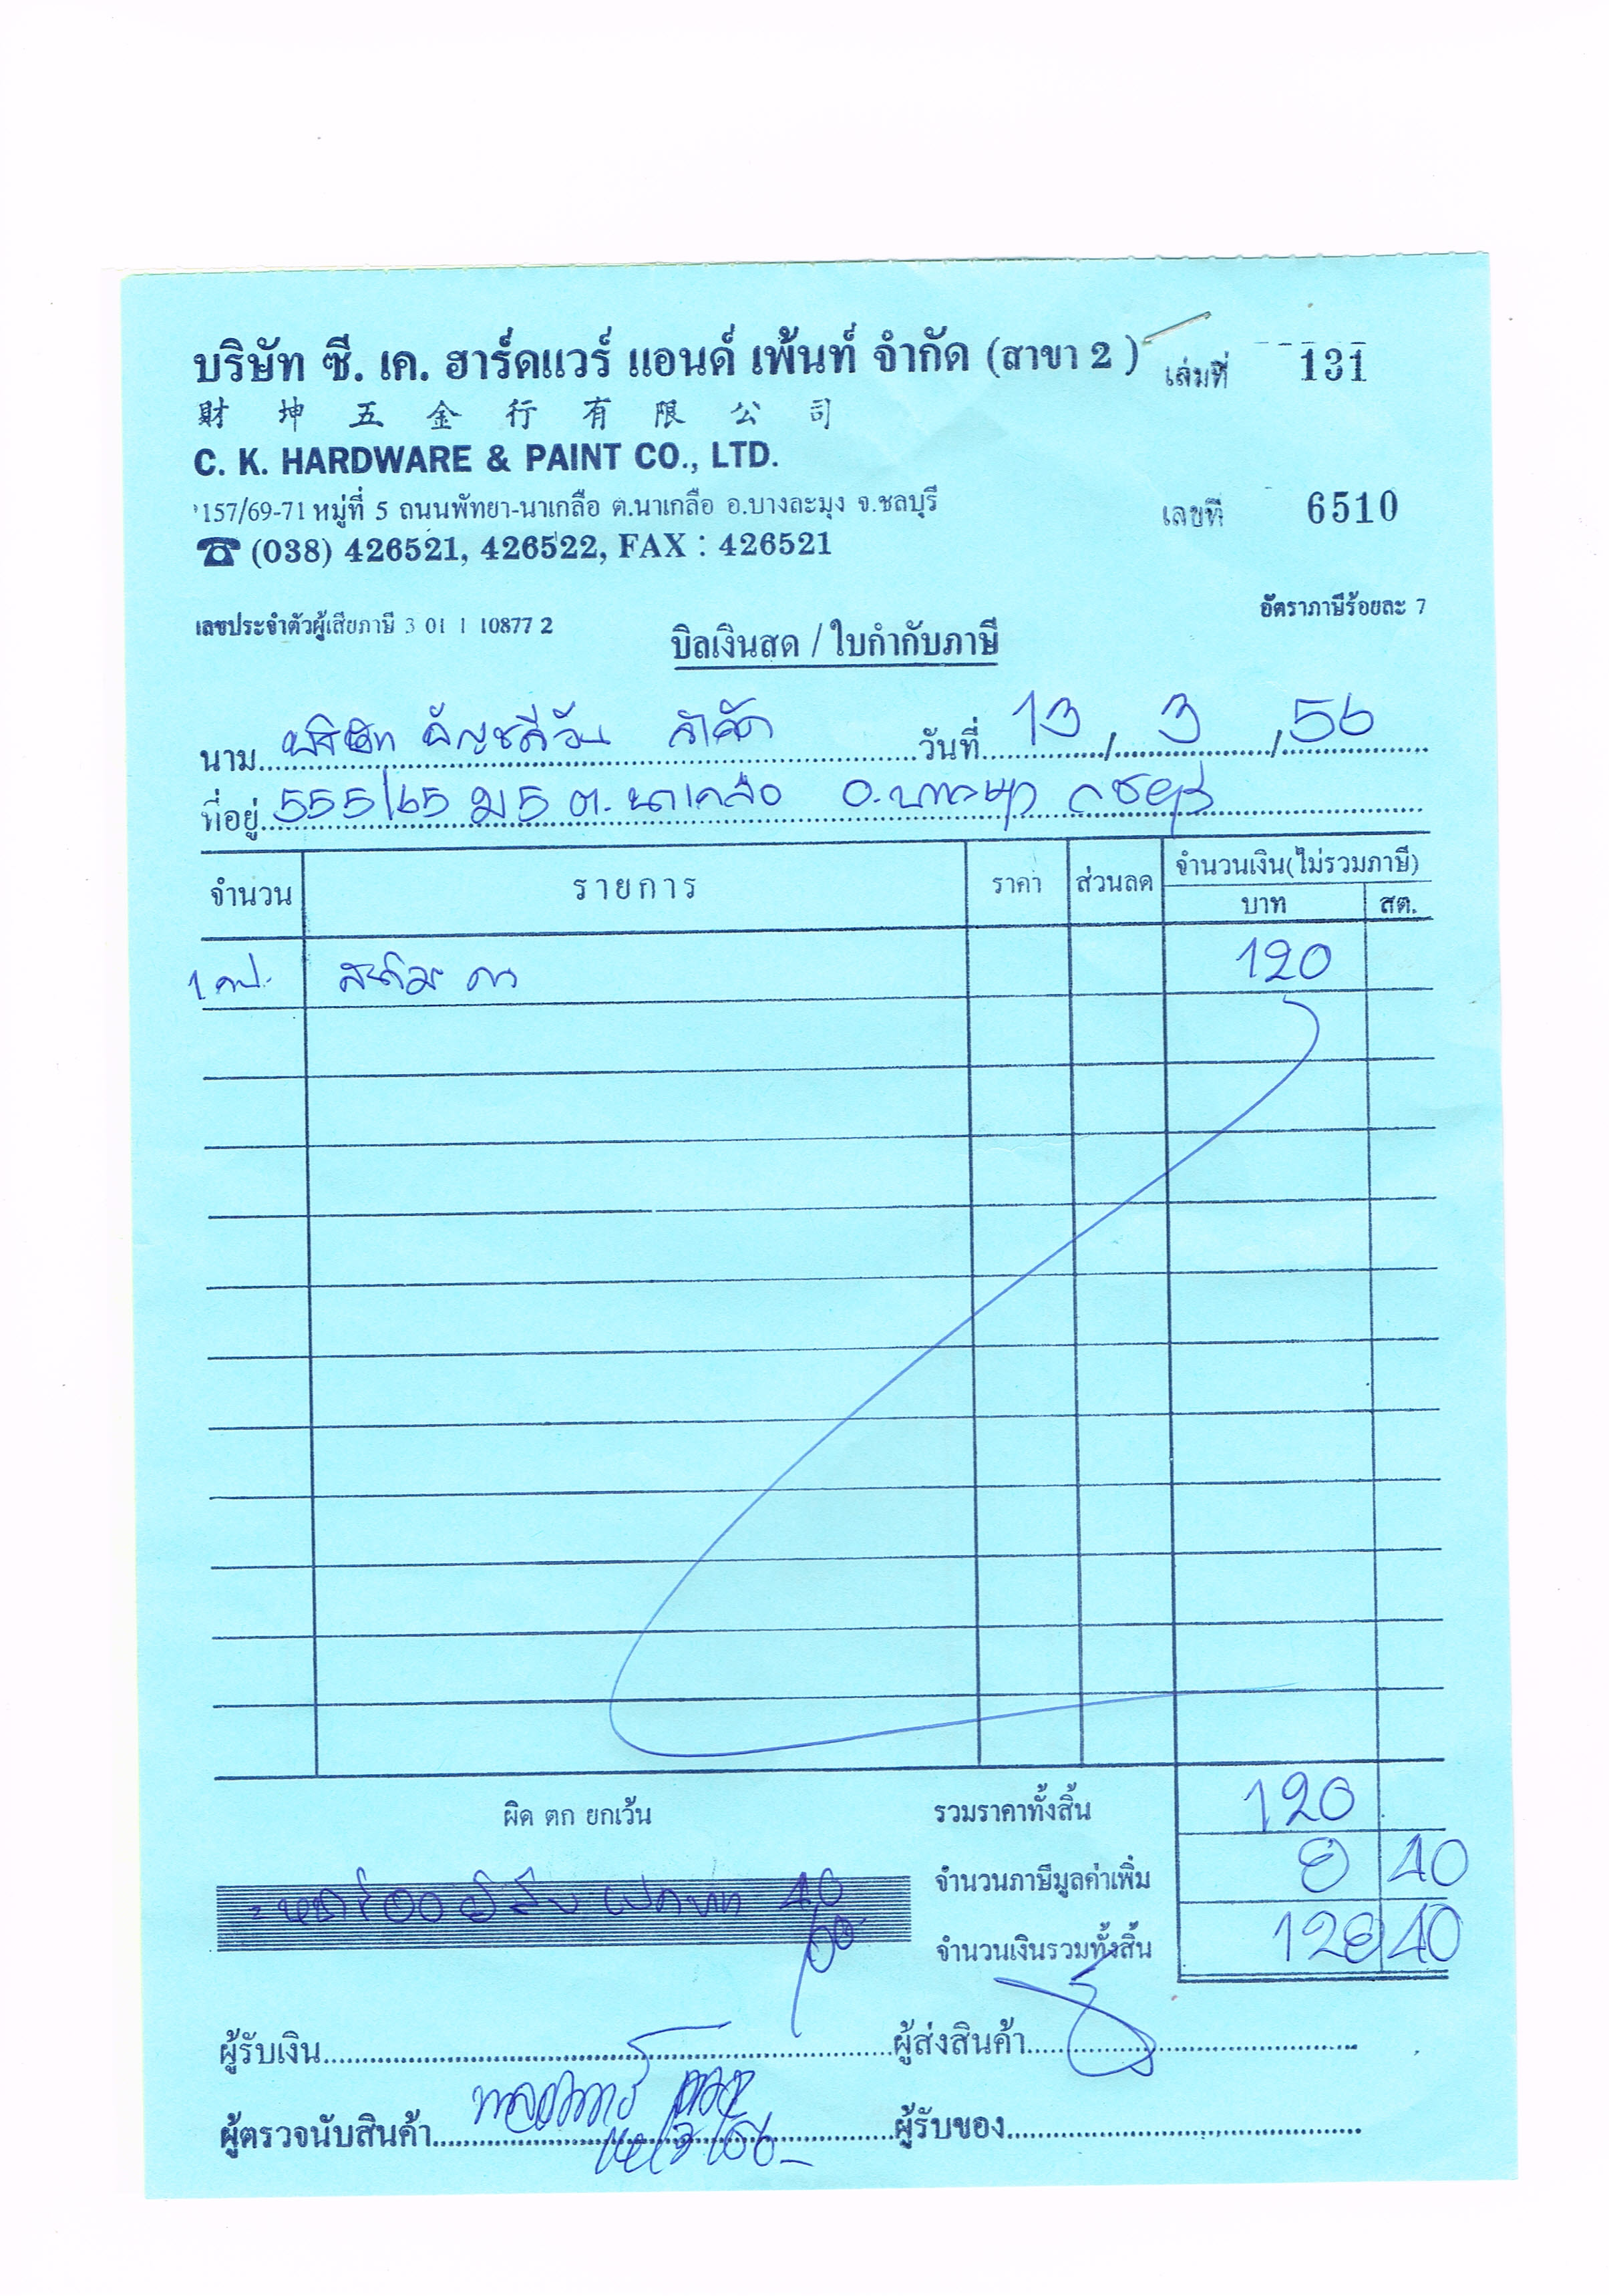 บริษัท ซี. เค. ฮาร์ดแวร์ แอนด์ เพ้นท์ จำกัด (สาขา 2 ) เล่มที่ 131
財坤五金行有限公司
C. K. HARDWARE & PAINT CO., LTD.
157/69-71 หมู่ที่ 5 ถนนพัทยา-นาเกลือ ต.นาเกลือ อ.บางละมุง จ.ชลบุรี เลขที่ 6510
☎ (038) 426521, 426522, FAX : 426521
อัตราภาษีร้อยละ 7
เลขประจำตัวผู้เสียภาษี 3 01 1 10877 2
บิลเงินสด / ใบกำกับภาษี
นาม บริษัท จำกัด วันที่ 13 / 3 / 56
ที่อยู่ 555/65 ม 5 ต. นาเกลือ
จำนวน รายการ ราคา ส่วนลด จำนวนเงิน(ไม่รวมภาษี)
บาท สต.
1 120
ผิด ตก ยกเว้น รวมราคาทั้งสิ้น 120
จำนวนภาษีมูลค่าเพิ่ม 8 40
จำนวนเงินรวมทั้งสิ้น 128 40
ผู้รับเงิน ผู้ส่งสินค้า
ผู้ตรวจนับสินค้า ผู้รับของ